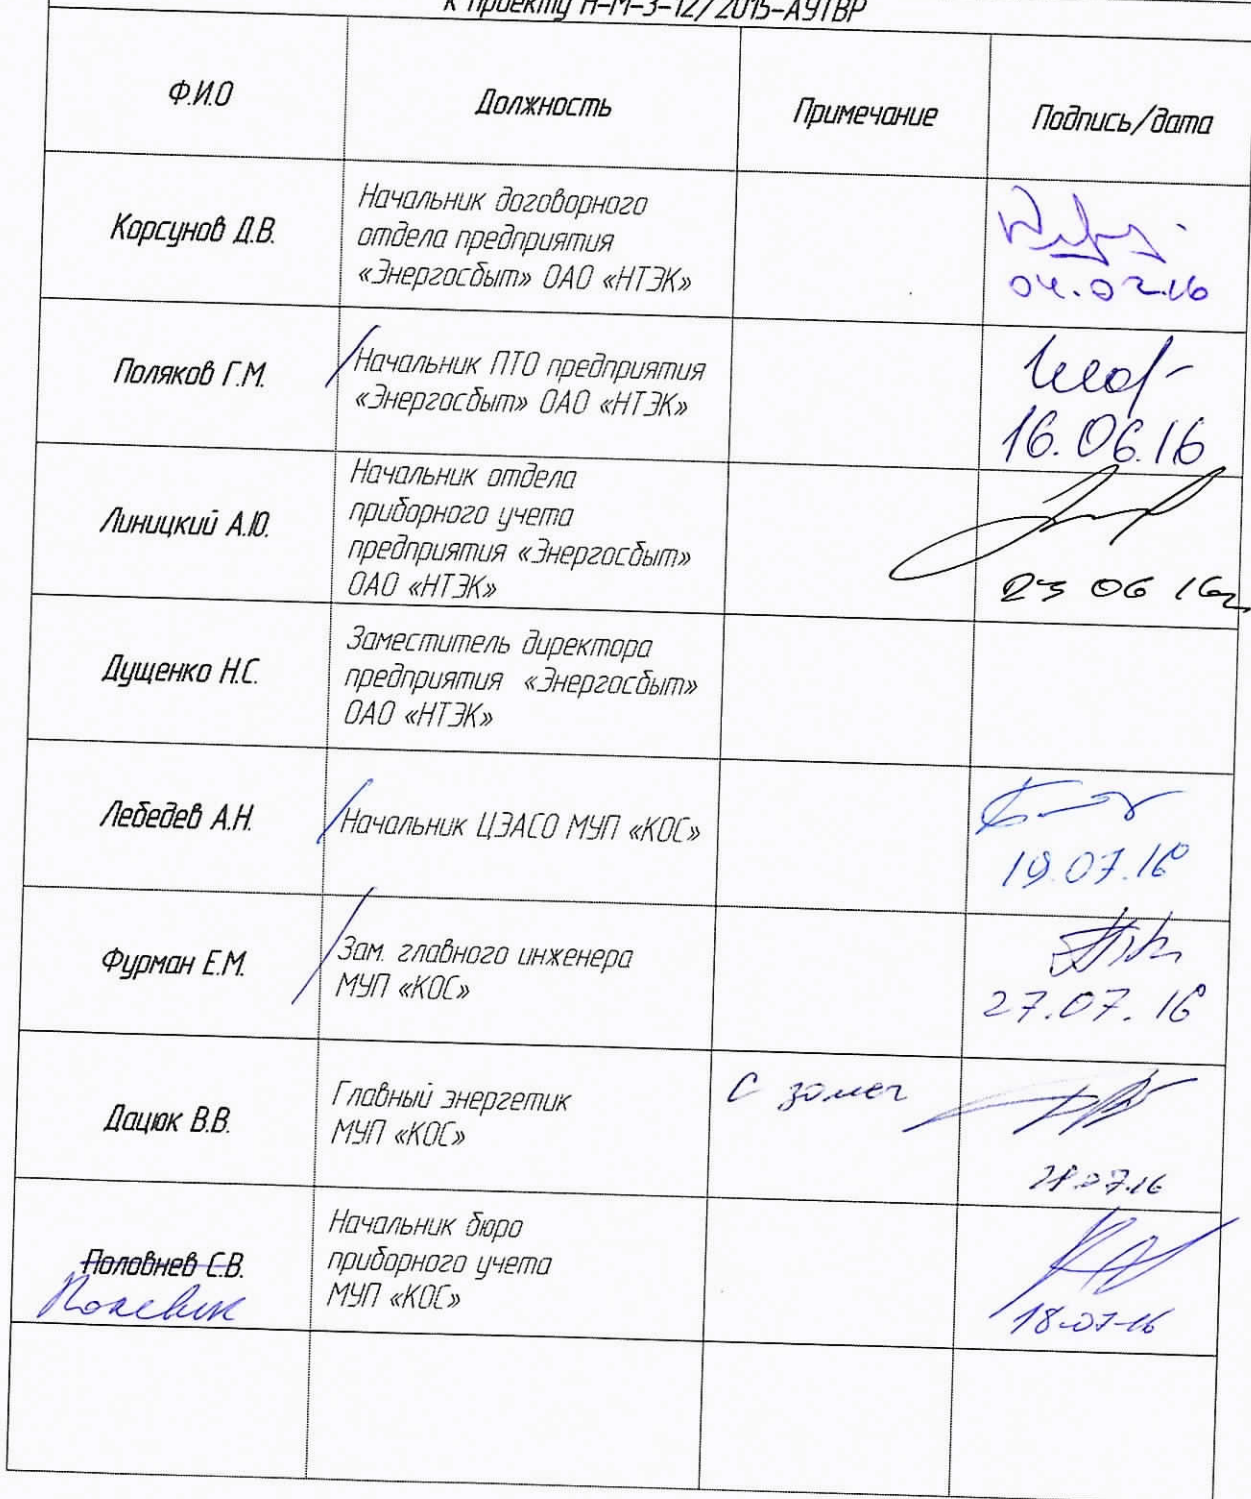 к проекту Н-М-3-12/2015-АУТВР
Ф.И.О
Должность
Примечание
Подпись/дата
Корсунов Д.В.
Начальник договорного
отдела предприятия
«Энергосбыт» ОАО «НТЭК»
04.02.16
Поляков Г.М.
Начальник ПТО предприятия
«Энергосбыт» ОАО «НТЭК»
16.06.16
Линицкий А.Ю.
Начальник отдела
приборного учета
предприятия «Энергосбыт»
ОАО «НТЭК»
23 06 16г
Дущенко Н.С.
Заместитель директора
предприятия «Энергосбыт»
ОАО «НТЭК»
Лебедев А.Н.
Начальник ЦЭАСО МУП «КОС»
19.07.16
Фурман Е.М.
Зам. главного инженера
МУП «КОС»
27.07.16
Дацюк В.В.
Главный энергетик
МУП «КОС»
С замеч
28.07.16
Половнев С.В.
Начальник бюро
приборного учета
МУП «КОС»
18-07-16